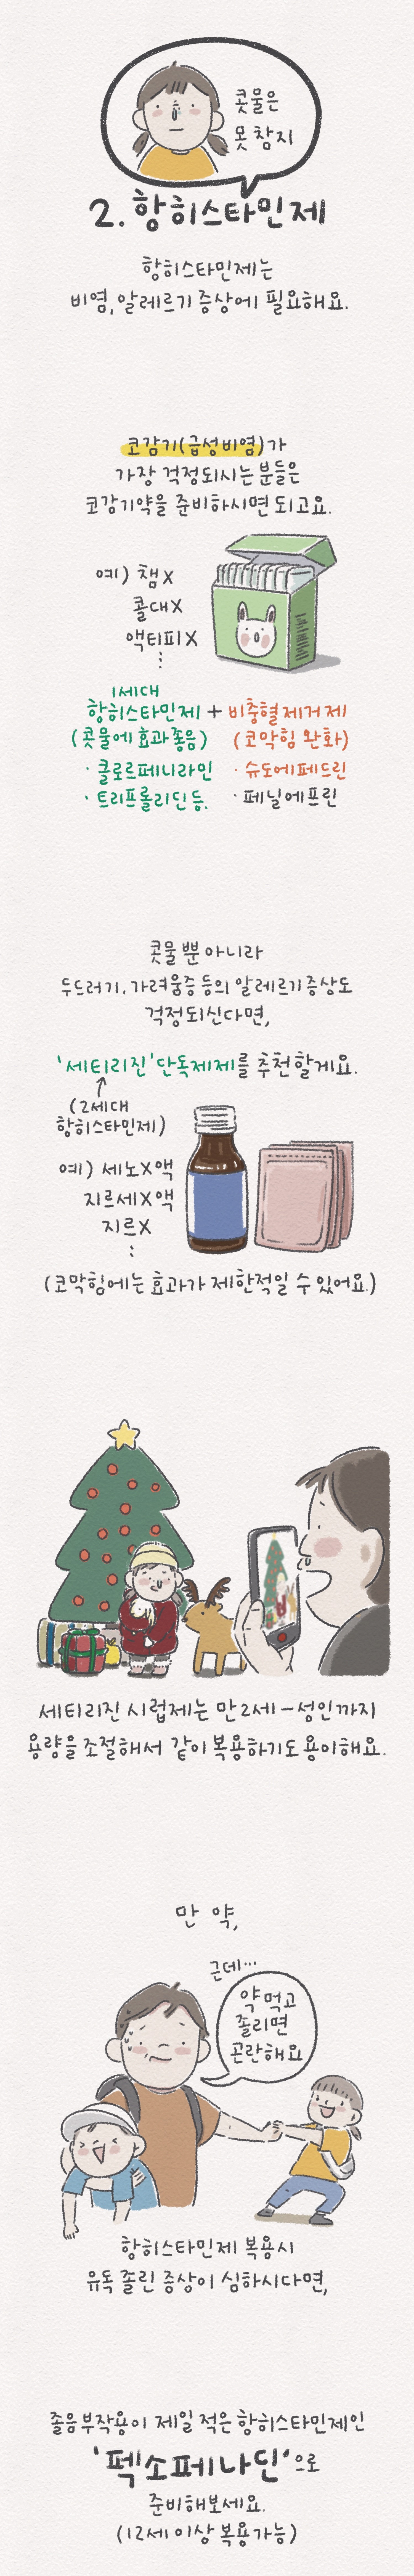 콧물은
못 참지
2. 항히스타민제
항히스타민제는
비염, 알레르기 증상에 필요해요.
코감기(급성비염)가
가장 걱정되시는 분들은
코감기약을 준비하시면 되고요.
예) 챔X
콜대X
액티피X
⋮
1세대
항히스타민제 + 비충혈제거제
(콧물에 효과좋음) (코막힘 완화)
· 클로르페니라민 · 슈도에페드린
· 트리프롤리딘 등. · 페닐에프린
콧물 뿐 아니라
두드러기, 가려움증 등의 알레르기 증상도
걱정되신다면,
'세티리진' 단독제제를 추천할게요.
↑
(2세대
항히스타민제)
예) 세노X액
지르세X액
지르X
⋮
(코막힘에는 효과가 제한적일 수 있어요.)
세티리진 시럽제는 만2세-성인까지
용량을 조절해서 같이 복용하기도 용이해요.
만 약,
근데...
약 먹고
졸리면
곤란해요
항히스타민제 복용시
유독 졸린 증상이 심하시다면,
졸음 부작용이 제일 적은 항히스타민제인
'펙소페나딘'으로
준비해보세요.
(12세 이상 복용가능)